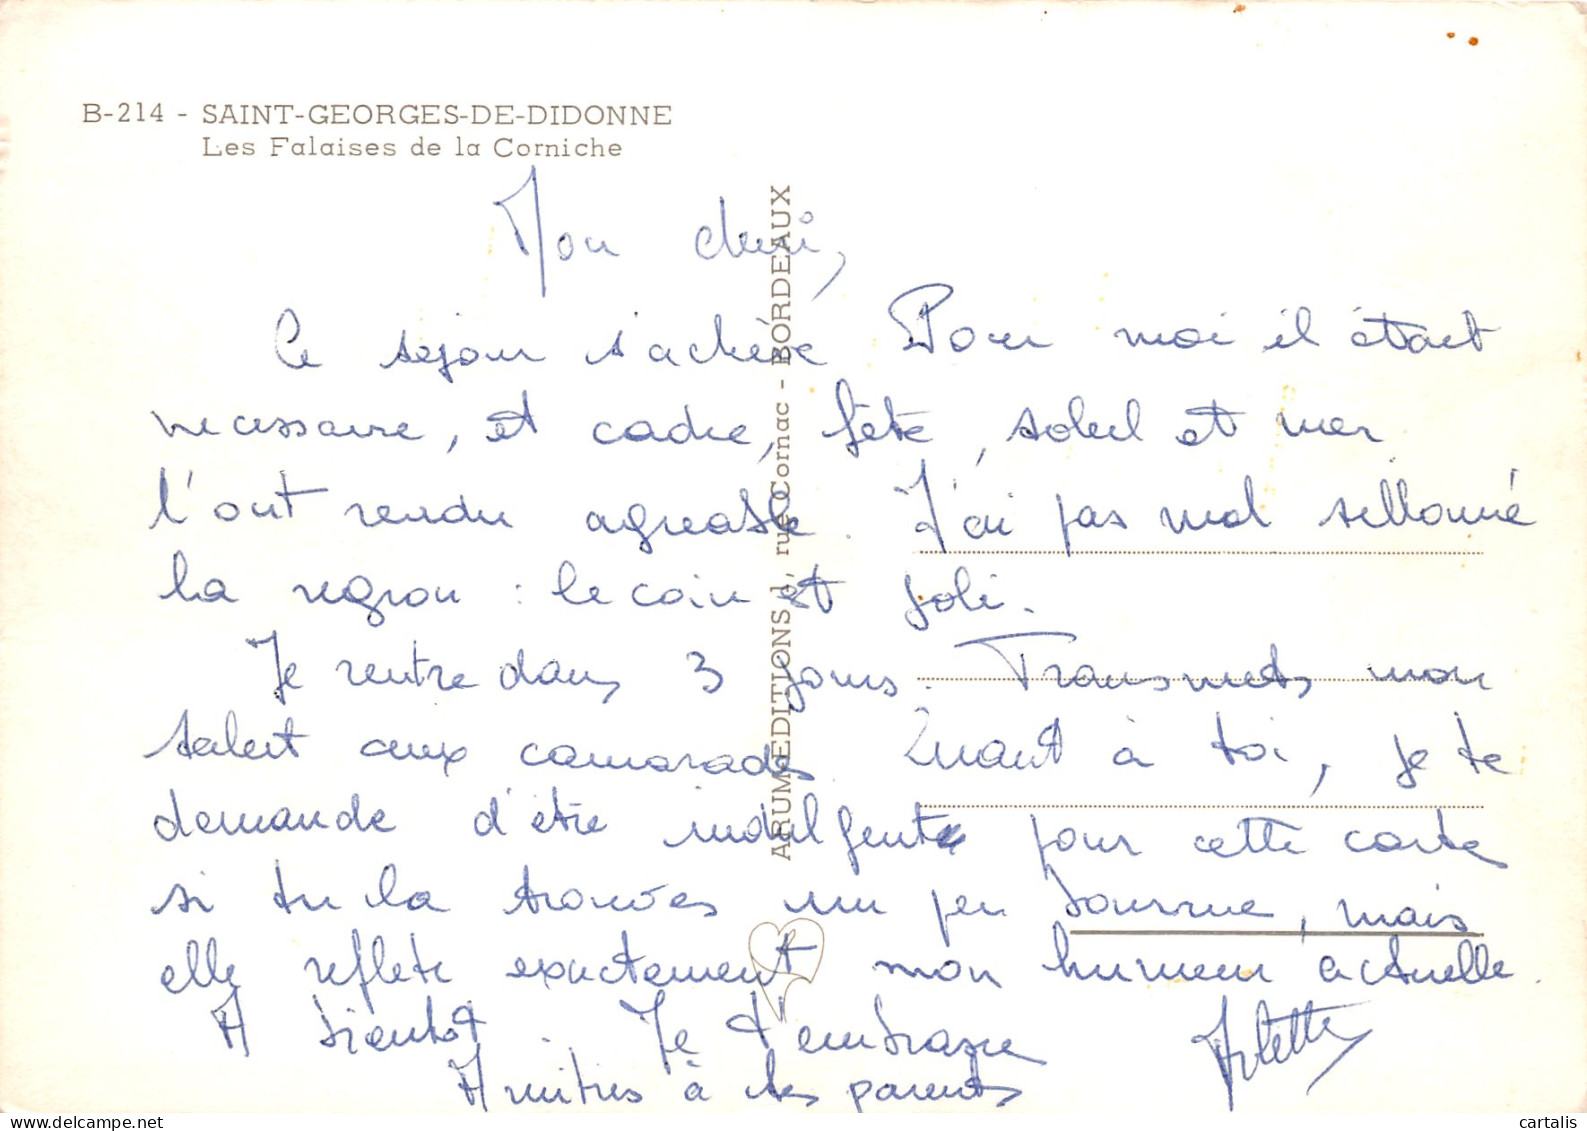 B-214 - SAINT-GEORGES-DE-DIDONNE
Les Falaises de la Corniche
Mon cheri,
Ce séjour s'achève Pour moi il était
necessaire, et cadre, fête, soleil et mer
l'ont rendu agreable. J'ai pas mal sillonné
la region : le coin est joli.
Je rentre dans 3 jours. Transmets mon
salut aux camarades Quant à toi, je te
demande d'être indulgent pour cette carte
si tu la trouves un peu mais
elle reflete exactement mon humeur actuelle.
A bientôt. Je t'embrasse Arlette
Amitiés à tes parents
ARUM EDITIONS rue Cornac - BORDEAUX
cartalis
delcampe.net